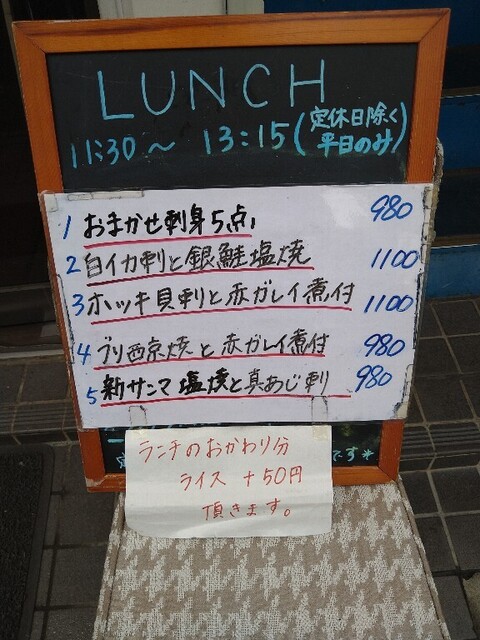 LUNCH
11:30～13:15(定休日除く
平日のみ)
1 おまかせ刺身5点 980
2 白イカ刺と銀鮭塩焼 1100
3 ホッキ貝刺と赤ガレイ煮付 1100
4 ブリ西京焼と赤ガレイ煮付 980
5 新サンマ塩焼と真あじ刺 980
ランチのおかわり分
ライス +50円
頂きます。
です*